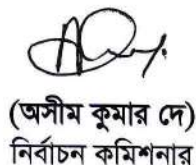 (অসীম কুমার দে)
নির্বাচন কমিশনার